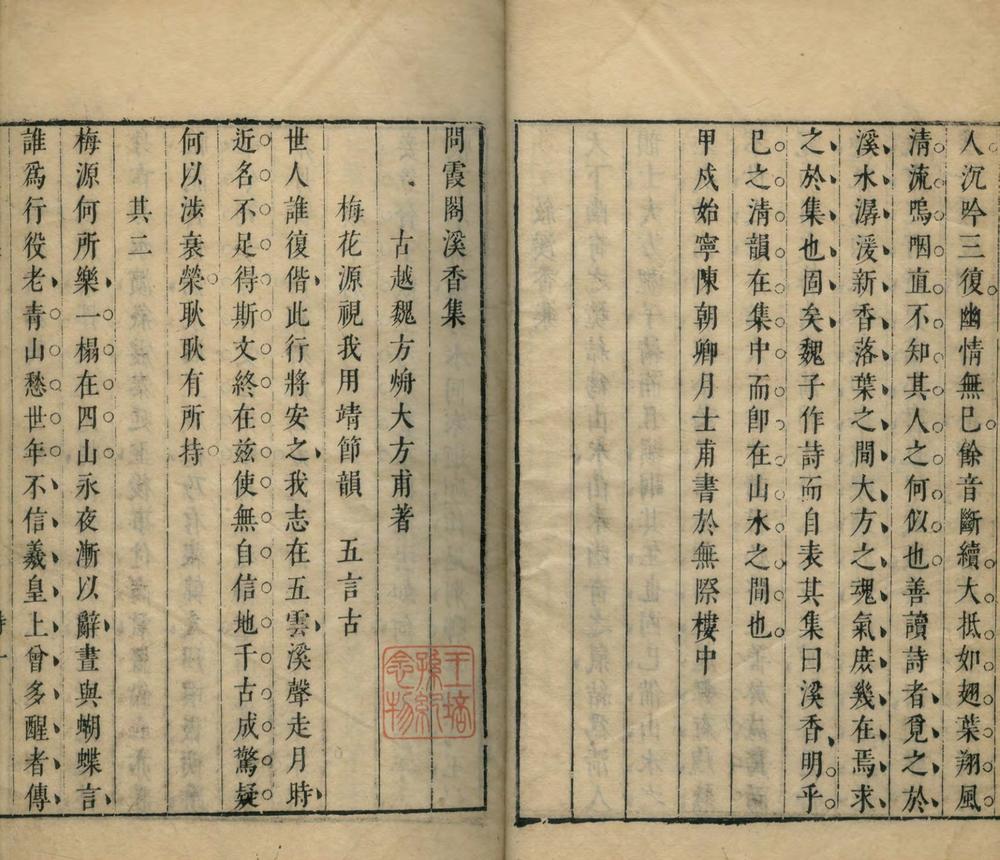 人沉吟三復幽情無已餘音斷續大抵如翅葉翔風
清流嗚咽直不知其人之何似也善讀詩者覓之於
溪水潺湲新香落葉之間大方之魂氣庶幾在焉求
之於集也固矣魏子作詩而自表其集曰溪香明乎
已之清韻在集中而卽在山水之間也
甲戍始寧陳朝卿月士甫書於無際樓中
問霞閣溪香集
古越魏方焴大方甫著
梅花源視我用靖節韻 五言古
世人誰復偕此行將安之我志在五雲溪聲走月時
近名不足得斯文終在兹使無自信地千古成驚疑
何以涉衰榮耿耿有所持
其二
梅源何所樂一榻在四山永夜漸以辭晝與蝴蝶言
誰爲行役老青山愁世年不信羲皇上曾多醒者傳
詩 一